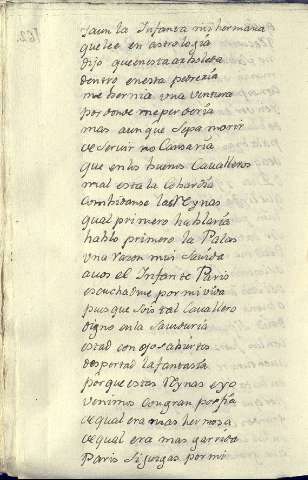 y aun la Infanta mi hermana
que lee en astrologia
dijo que en esta arboleda
dentro en esta pedrezia
me hernia una ventura
por donde me perderia
mas aunque sepa morir
de servir no cansaria
que en los buenos Cavalleros
mal esta la Cobardia
Combidanse las Reynas
qual primero hablaria
hablo primero la Palas
una razon mui sauida
a vos el Infante Paris
escuchadme por mi vida
pues que sois tal Cavallero
digno en la Sauiduria
estad con ojos abiertos
despertad la fantasia
porque estas Reynas e yo
venimos con gran porfia
de qual era mas hermosa
de qual era mas garrida
Paris si juzgas por mi